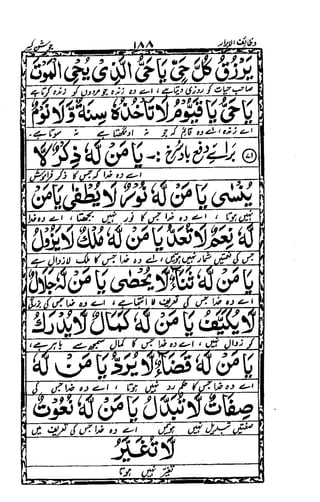 وظائف الابرار ۱۸۸ جوشن کبیر
يَرْزُقُ كُلَّ حَيٍّ يَا حَيُّ الَّذِي يُحْيِي الْمَوْتٰى
صاحب حیات کو روزی دیتا ہے، اے وہ زندہ جو مردوں کو زندہ کرتا ہے
يَا حَيُّ يَا قَيُّوْمُ لَا تَأْخُذُهٗ سِنَةٌ وَّلَا نَوْمٌ
اے زندہ اے وہ قائم کہ جو نہ اونگھتا ہے نہ سوتا ہے۔
(۷۱) برائے دفع باد سرخ :۔ يَا مَنْ لَهٗ ذِكْرٌ لَا
اے وہ خدا کہ جس کا ذکر فراموش
يُنْسٰى يَا مَنْ لَهٗ نُوْرٌ لَا يُطْفٰى يَا مَنْ
نہیں ہوتا، اے وہ خدا جس کا نور نہیں بجھتا، اے وہ خدا
لَهٗ نِعَمٌ لَا تُعَدُّ يَا مَنْ لَهٗ مُلْكٌ لَا يَزُوْلُ
جس کی نعمتیں شمار نہیں ہوتیں، اے وہ خدا جس کا ملک لازوال ہے
يَا مَنْ لَهٗ ثَنَاءٌ لَا يُحْصٰى يَا مَنْ لَهٗ جَلَالٌ
اے وہ خدا جس کی تعریف لا انتہا ہے، اے وہ خدا جس کی بزرگی
لَا يُكَيَّفُ يَا مَنْ لَهٗ كَمَالٌ لَا يُدْرَكُ
کو زوال نہیں، اے وہ خدا جس کا کمال سمجھ سے باہر ہے،
يَا مَنْ لَهٗ قَضَاءٌ لَا يُرَدُّ يَا مَنْ لَهٗ
اے وہ خدا جس کا حکم رد نہیں ہوتا، اے وہ خدا جس کی
صِفَاتٌ لَا تُبَدَّلُ يَا مَنْ لَهٗ نُعُوْتٌ
صفتیں تبدیل نہیں ہوتیں اے وہ خدا جس کی تعریف میں
لَا تُغَيَّرُ
تغیر نہیں ہوتا